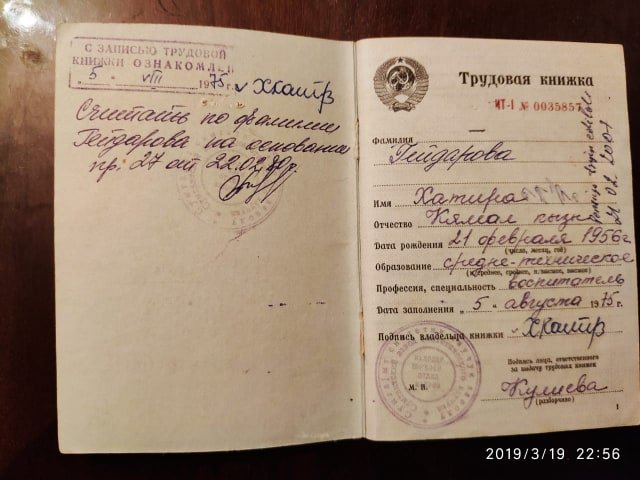 С ЗАПИСЬЮ ТРУДОВОЙ
КНИЖКИ ОЗНАКОМЛЕН
"5" VIII 1975 г.
Считать по фамилии
Гейдарова на основании
пр: 27 от 22.02.80г.
Трудовая книжка
ИТ-I № 0035857
Фамилия
Гейдарова
Имя Хатира
Отчество Кямал кызы
Дата рождения 21 февраля 1956г
(число, месяц, год)
Образование средне-техническое
Профессия, специальность воспитатель
Дата заполнения "5" августа 1975г.
Подпись владельца книжки
Подпись лица, ответственного
за выдачу трудовых книжек
М. П.
Кулиева
(разборчиво)
1
21.02.2001
2019/3/19 22:56